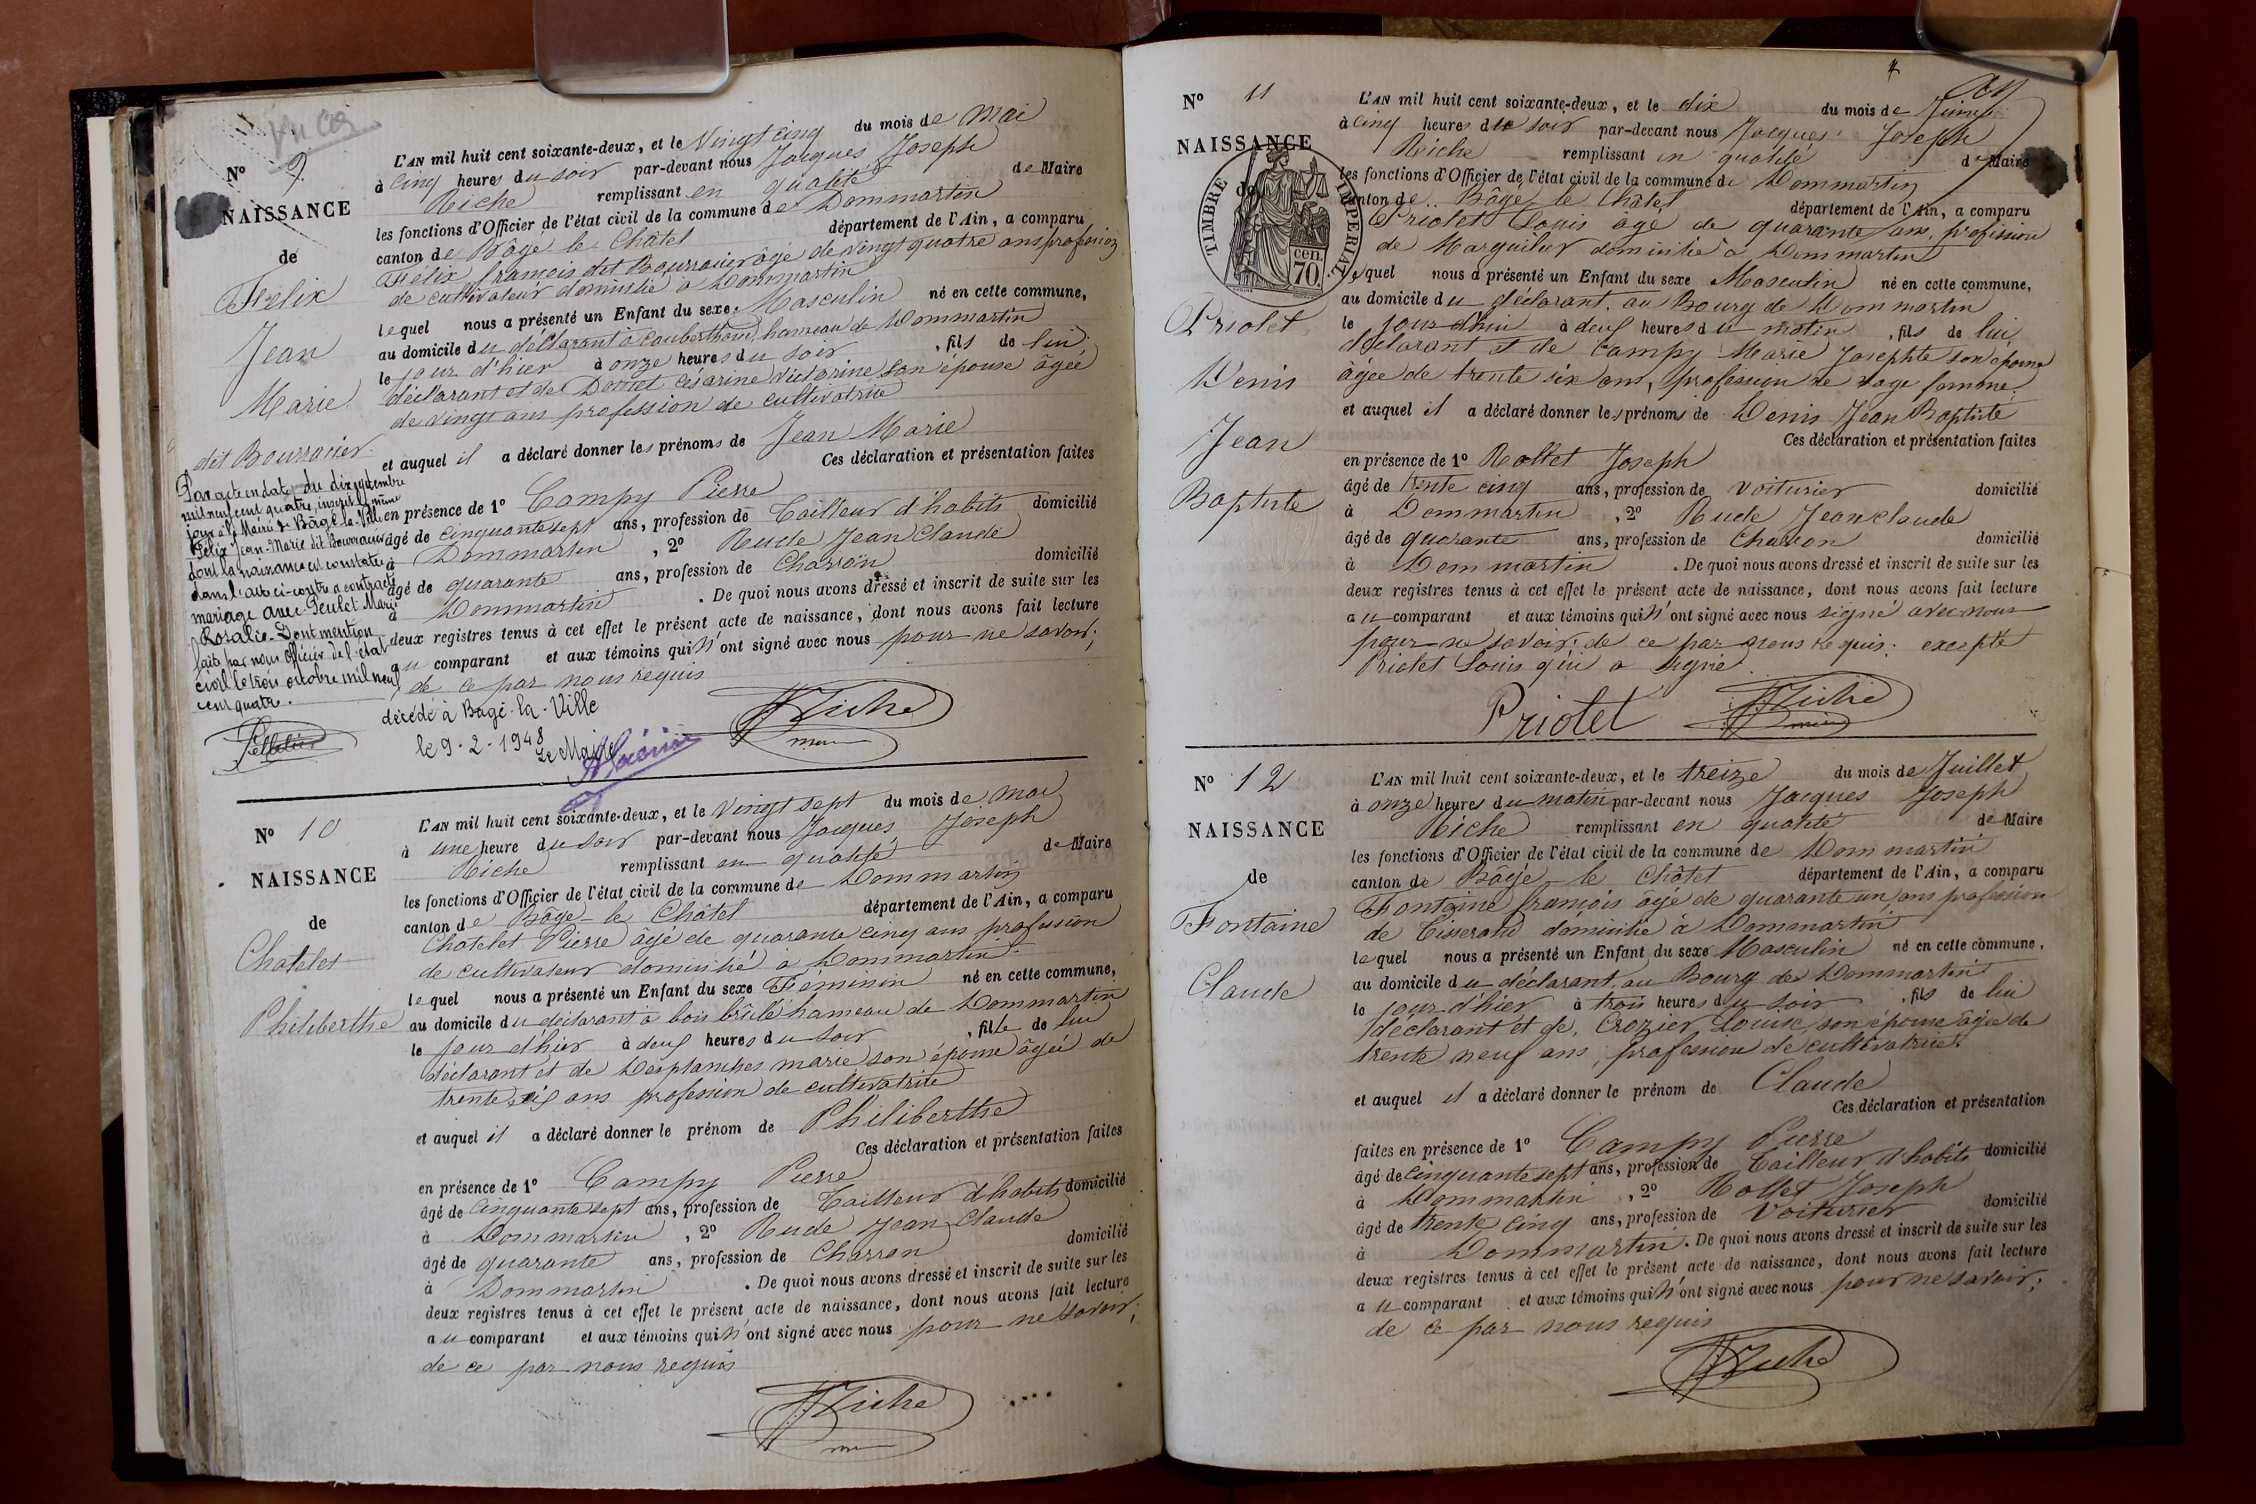 N° 9.
NAISSANCE
de
Félix
Jean
Marie
dit Bourracier
L'AN mil huit cent soixante-deux, et le Vingt cinq du mois de Mai
à cinq heures du soir par-devant nous Jacques Joseph
Riche remplissant en qualité de Maire
les fonctions d'Officier de l'état civil de la commune de Dommartin
canton de Bâgé le Châtel département de l'Ain, a comparu
Félix françois dit Bourracier âgé de vingt quatre ans profession
de cultivateur domicilié à Dommartin
lequel nous a présenté un Enfant du sexe Masculin né en cette commune,
au domicile du déclarant à hameau de Dommartin
le jour d'hier à onze heures du soir, fils de lui
déclarant et de Césarine Victorine son épouse âgée
de vingt ans profession de cultivatrice
et auquel il a déclaré donner les prénoms de Jean Marie
Ces déclaration et présentation faites
en présence de 1° Campy Pierre
âgé de cinquante sept ans, profession de Tailleur d'habits domicilié
à Dommartin, 2° Rude Jean Claude
âgé de quarante ans, profession de Charron domicilié
à Dommartin. De quoi nous avons dressé et inscrit de suite sur les
deux registres tenus à cet effet le présent acte de naissance, dont nous avons fait lecture
au comparant et aux témoins qui n'ont signé avec nous pour ne savoir;
de ce par nous requis
Riche
Par acte en date du dix septembre
mil neuf cent quatre, inscrit le même
jour à la Mairie de Bâgé-la-Ville
Félix Jean-Marie dit Bourracier
dont la naissance est constatée
dans l'acte ci-contre a contracté
mariage avec Peulet Marie
Rosalie. Dont mention
faite par nous officier de l'état
civil le trois octobre mil neuf
cent quatre.
Pelletier
décédé à Bagé-la-Ville
le 9-2-1948
Le Maire
N° 10
NAISSANCE
de
Chatelet
Philiberthe
L'AN mil huit cent soixante-deux, et le Vingt sept du mois de mai
à une heure du soir par-devant nous Jacques Joseph
Riche remplissant en qualité de Maire
les fonctions d'Officier de l'état civil de la commune de Dommartin
canton de Bâgé-le Châtel département de l'Ain, a comparu
Chatelet Pierre âgé de quarante cinq ans profession
de cultivateur domicilié à Dommartin
lequel nous a présenté un Enfant du sexe Féminin né en cette commune,
au domicile du déclarant à bois brûlé hameau de Dommartin
le jour d'hier à deux heures du soir, fille de lui
déclarant et de Desplanches marie son épouse âgée de
trente six ans profession de cultivatrice
et auquel il a déclaré donner le prénom de Philiberthe
Ces déclaration et présentation faites
en présence de 1° Campy Pierre
âgé de cinquante sept ans, profession de Tailleur d'habits domicilié
à Dommartin, 2° Rude Jean Claude
âgé de quarante ans, profession de Charron domicilié
à Dommartin. De quoi nous avons dressé et inscrit de suite sur les
deux registres tenus à cet effet le présent acte de naissance, dont nous avons fait lecture
au comparant et aux témoins qui n'ont signé avec nous pour ne savoir;
de ce par nous requis
Riche
N° 11
NAISSANCE
de
TIMBRE IMPERIAL
70 cen.
Priolet
Denis
Jean
Baptiste
L'AN mil huit cent soixante-deux, et le dix du mois de Juin
à cinq heures du soir par-devant nous Jacques Joseph
Riche remplissant en qualité de Maire
les fonctions d'Officier de l'état civil de la commune de Dommartin
canton de Bâgé le Châtel département de l'Ain, a comparu
Priolet Louis âgé de quarante ans, profession
de Marguilier domicilié à Dommartin
lequel nous a présenté un Enfant du sexe Masculin né en cette commune,
au domicile du déclarant au Bourg de Dommartin
le jour d'hui à deux heures du matin, fils de lui
déclarant et de Campy Marie Josephte son épouse
âgée de trente six ans, profession de sage femme
et auquel il a déclaré donner les prénoms de Denis Jean Baptiste
Ces déclaration et présentation faites
en présence de 1° Rollet Joseph
âgé de trente cinq ans, profession de voiturier domicilié
à Dommartin, 2° Rude Jean Claude
âgé de quarante ans, profession de Charron domicilié
à Dommartin. De quoi nous avons dressé et inscrit de suite sur les
deux registres tenus à cet effet le présent acte de naissance, dont nous avons fait lecture
au comparant et aux témoins qui n'ont signé avec nous signé avec nous
pour ne savoir; de ce par nous requis. excepté
Priolet Louis qui a signé
Priolet Riche
N° 12
NAISSANCE
de
Fontaine
Claude
L'AN mil huit cent soixante-deux, et le treize du mois de Juillet
à onze heures du matin par-devant nous Jacques Joseph
Riche remplissant en qualité de Maire
les fonctions d'Officier de l'état civil de la commune de Dommartin
canton de Bâgé-le Châtel département de l'Ain, a comparu
Fontaine françois âgé de quarante un ans profession
de Tisserand domicilié à Dommartin
lequel nous a présenté un Enfant du sexe Masculin né en cette commune,
au domicile du déclarant au Bourg de Dommartin
le jour d'hier à trois heures du soir, fils de lui
déclarant et de Crozier Louise son épouse âgée de
trente neuf ans, profession de cultivatrice
et auquel il a déclaré donner le prénom de Claude
Ces déclaration et présentation
faites en présence de 1° Campy Pierre
âgé de cinquante sept ans, profession de Tailleur d'habits domicilié
à Dommartin, 2° Rollet Joseph
âgé de trente cinq ans, profession de Voiturier domicilié
à Dommartin. De quoi nous avons dressé et inscrit de suite sur les
deux registres tenus à cet effet le présent acte de naissance, dont nous avons fait lecture
au comparant et aux témoins qui n'ont signé avec nous pour ne savoir;
de ce par nous requis
Riche